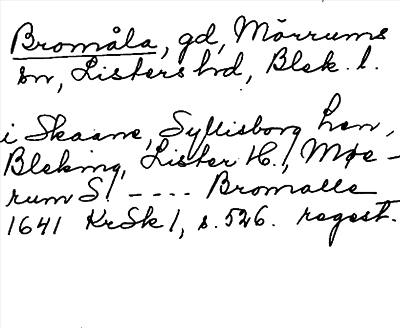 Bromåla, gd, Mörrums
sn, Listers hd, Blek. l.
i Skaane, Syllisborg Len,
Bleking, Lister H., Møe-
rum S. ---- Bromalle
1641 KrSk 1, s. 526. regest.